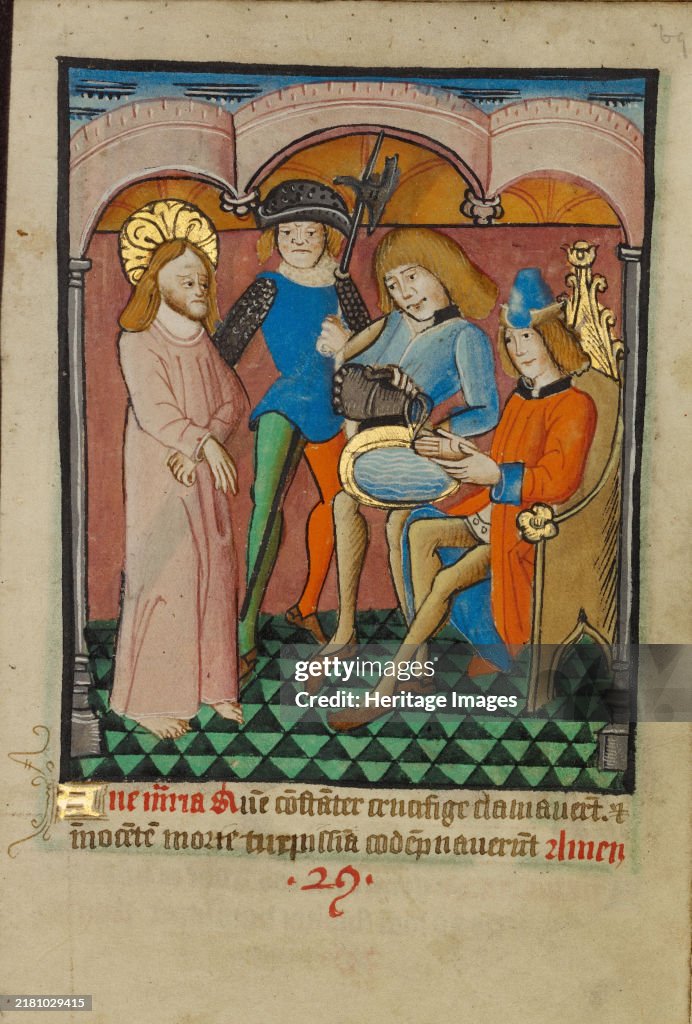 69
gettyimages
Credit: Heritage Images
Aue m̄ria Quē cōstāter crucifige clamauert̄. ⁊
īnocētē morte turpissīa codēpnauerūt Amen
.29.
2181029415